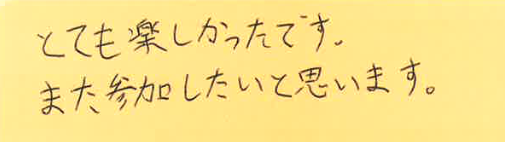 とても楽しかったです。
また、参加したいと思います。